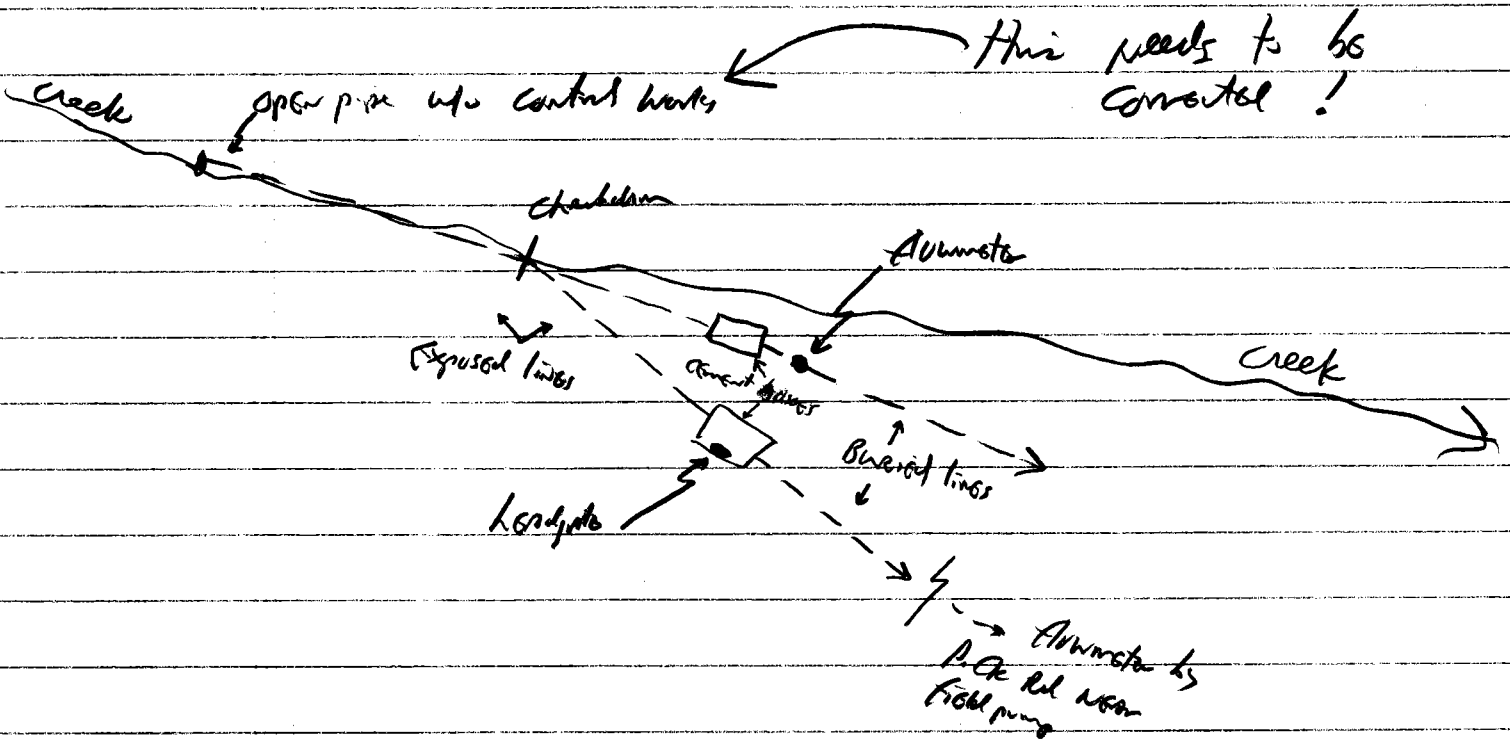 this needs to be
corrected !
Creek
open pipe w/o control works
Checkdam
flowmeter
Exposed lines
cement boxes
Creek
Buried lines
headgate
flowmeter by
Rd near
Field pump